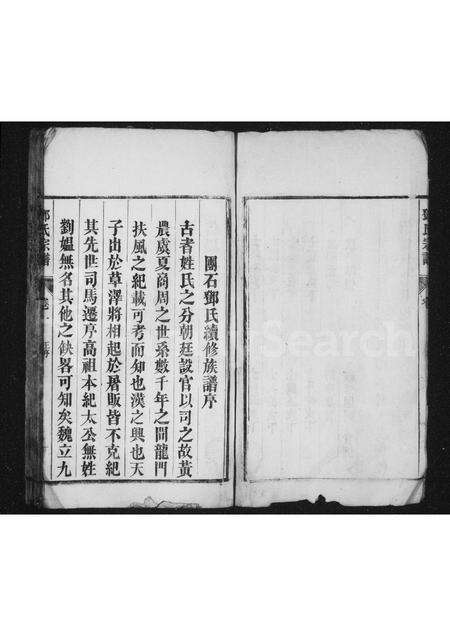 團石鄧氏續修族譜序
古者姓氏之分朝廷設官以司之故黃
農虞夏商周之世系數千年之間龍門
扶風之紀載可考而知也漢之興也天
子出於草澤將相起於屠販皆不克紀
其先世司馬遷序高祖本紀太公無姓
劉媼無名其他之缺畧可知矣魏立九
鄧氏宗譜
鄧氏宗譜